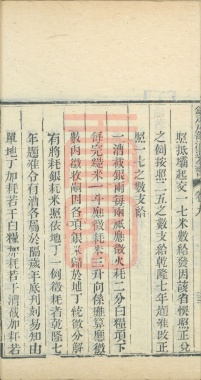 照抵壩起交一七米數給發因該省悞照正兌
之例按照二五之數支給乾隆七年題准改正
照一七之數支給
一漕截銀兩每兩應徵火耗二分白糧項下
每完糙米一斗應徵耗米三升向係雜算應徵
數內徵收嗣因各項銀米歸於地丁統徵分解
有將耗銀耗米照依地丁一例徵耗者乾隆七
年題准令有漕各屬於隔歲年底刋刻易知由
單地丁加耗若干白糧加耗若干漕截加耗若